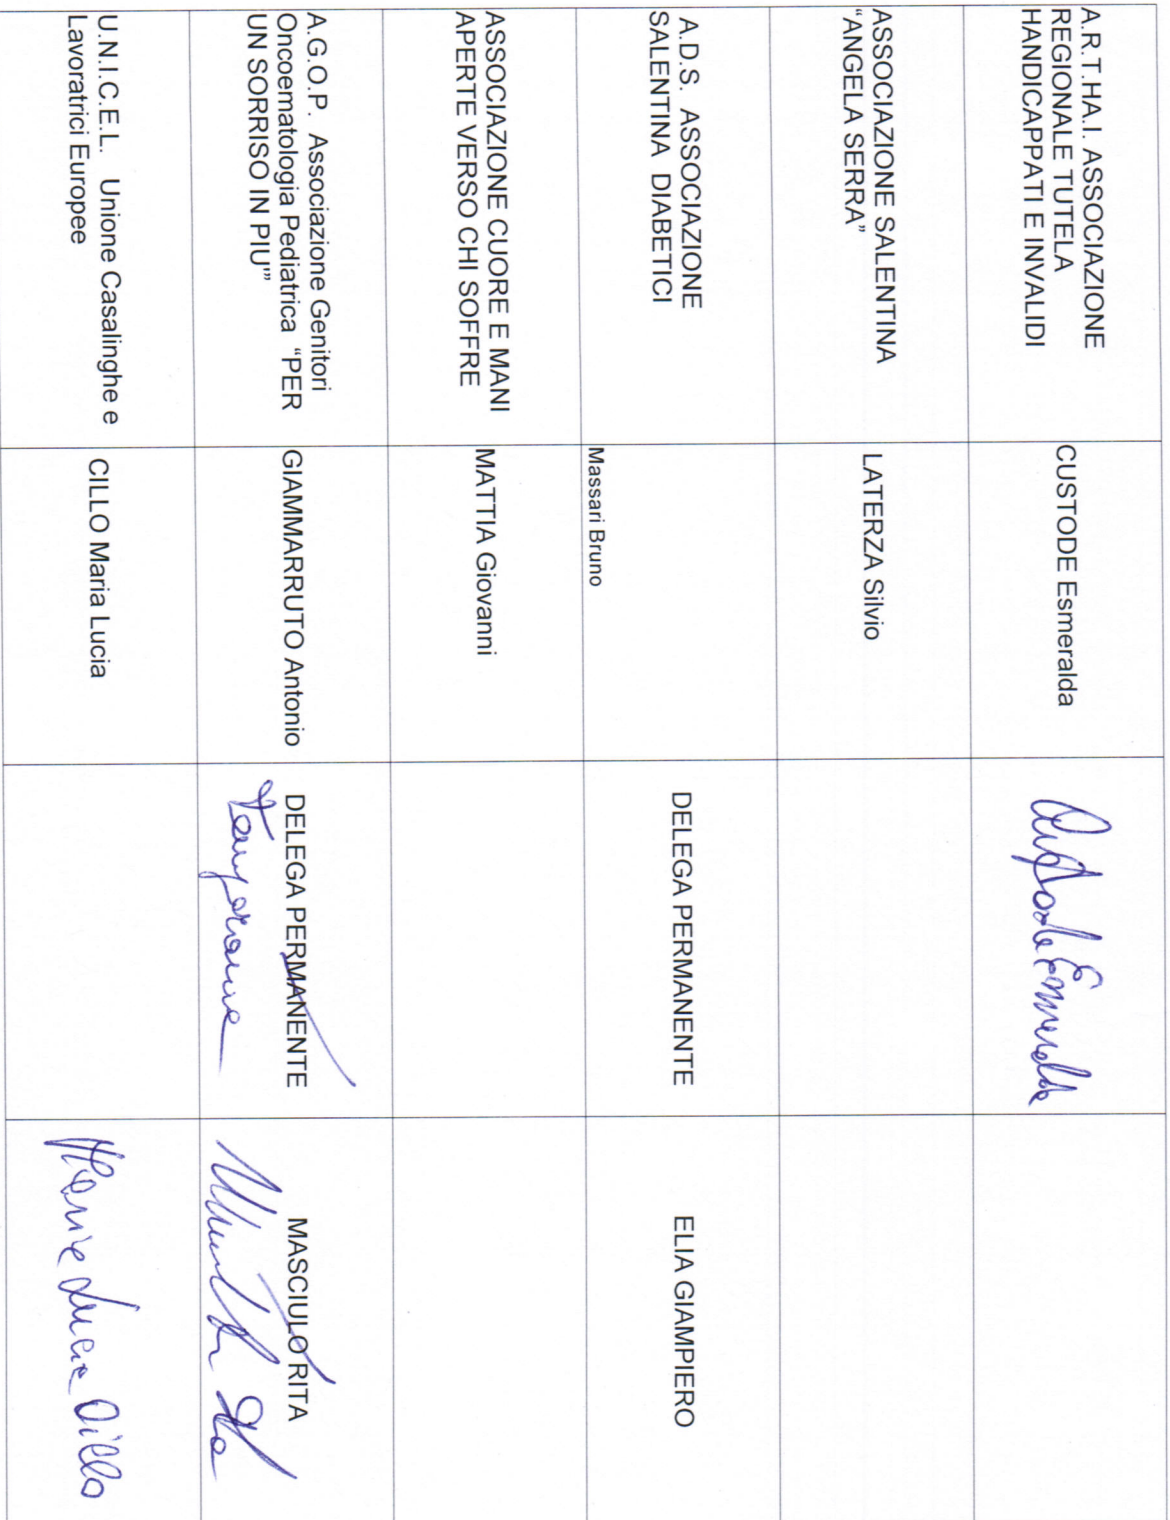 A.R.T.HA.I. ASSOCIAZIONE
REGIONALE TUTELA
HANDICAPPATI E INVALIDI
CUSTODE Esmeralda
Custode Esmeralda
ASSOCIAZIONE SALENTINA
"ANGELA SERRA"
LATERZA Silvio
A.D.S. ASSOCIAZIONE
SALENTINA DIABETICI
Massari Bruno
DELEGA PERMANENTE
ELIA GIAMPIERO
ASSOCIAZIONE CUORE E MANI
APERTE VERSO CHI SOFFRE
MATTIA Giovanni
A.G.O.P. Associazione Genitori
Oncoematologia Pediatrica "PER
UN SORRISO IN PIU'"
GIAMMARRUTO Antonio
DELEGA PERMANENTE
MASCIULO RITA
U.N.I.C.E.L. Unione Casalinghe e
Lavoratrici Europee
CILLO Maria Lucia
Maria Lucia Cillo